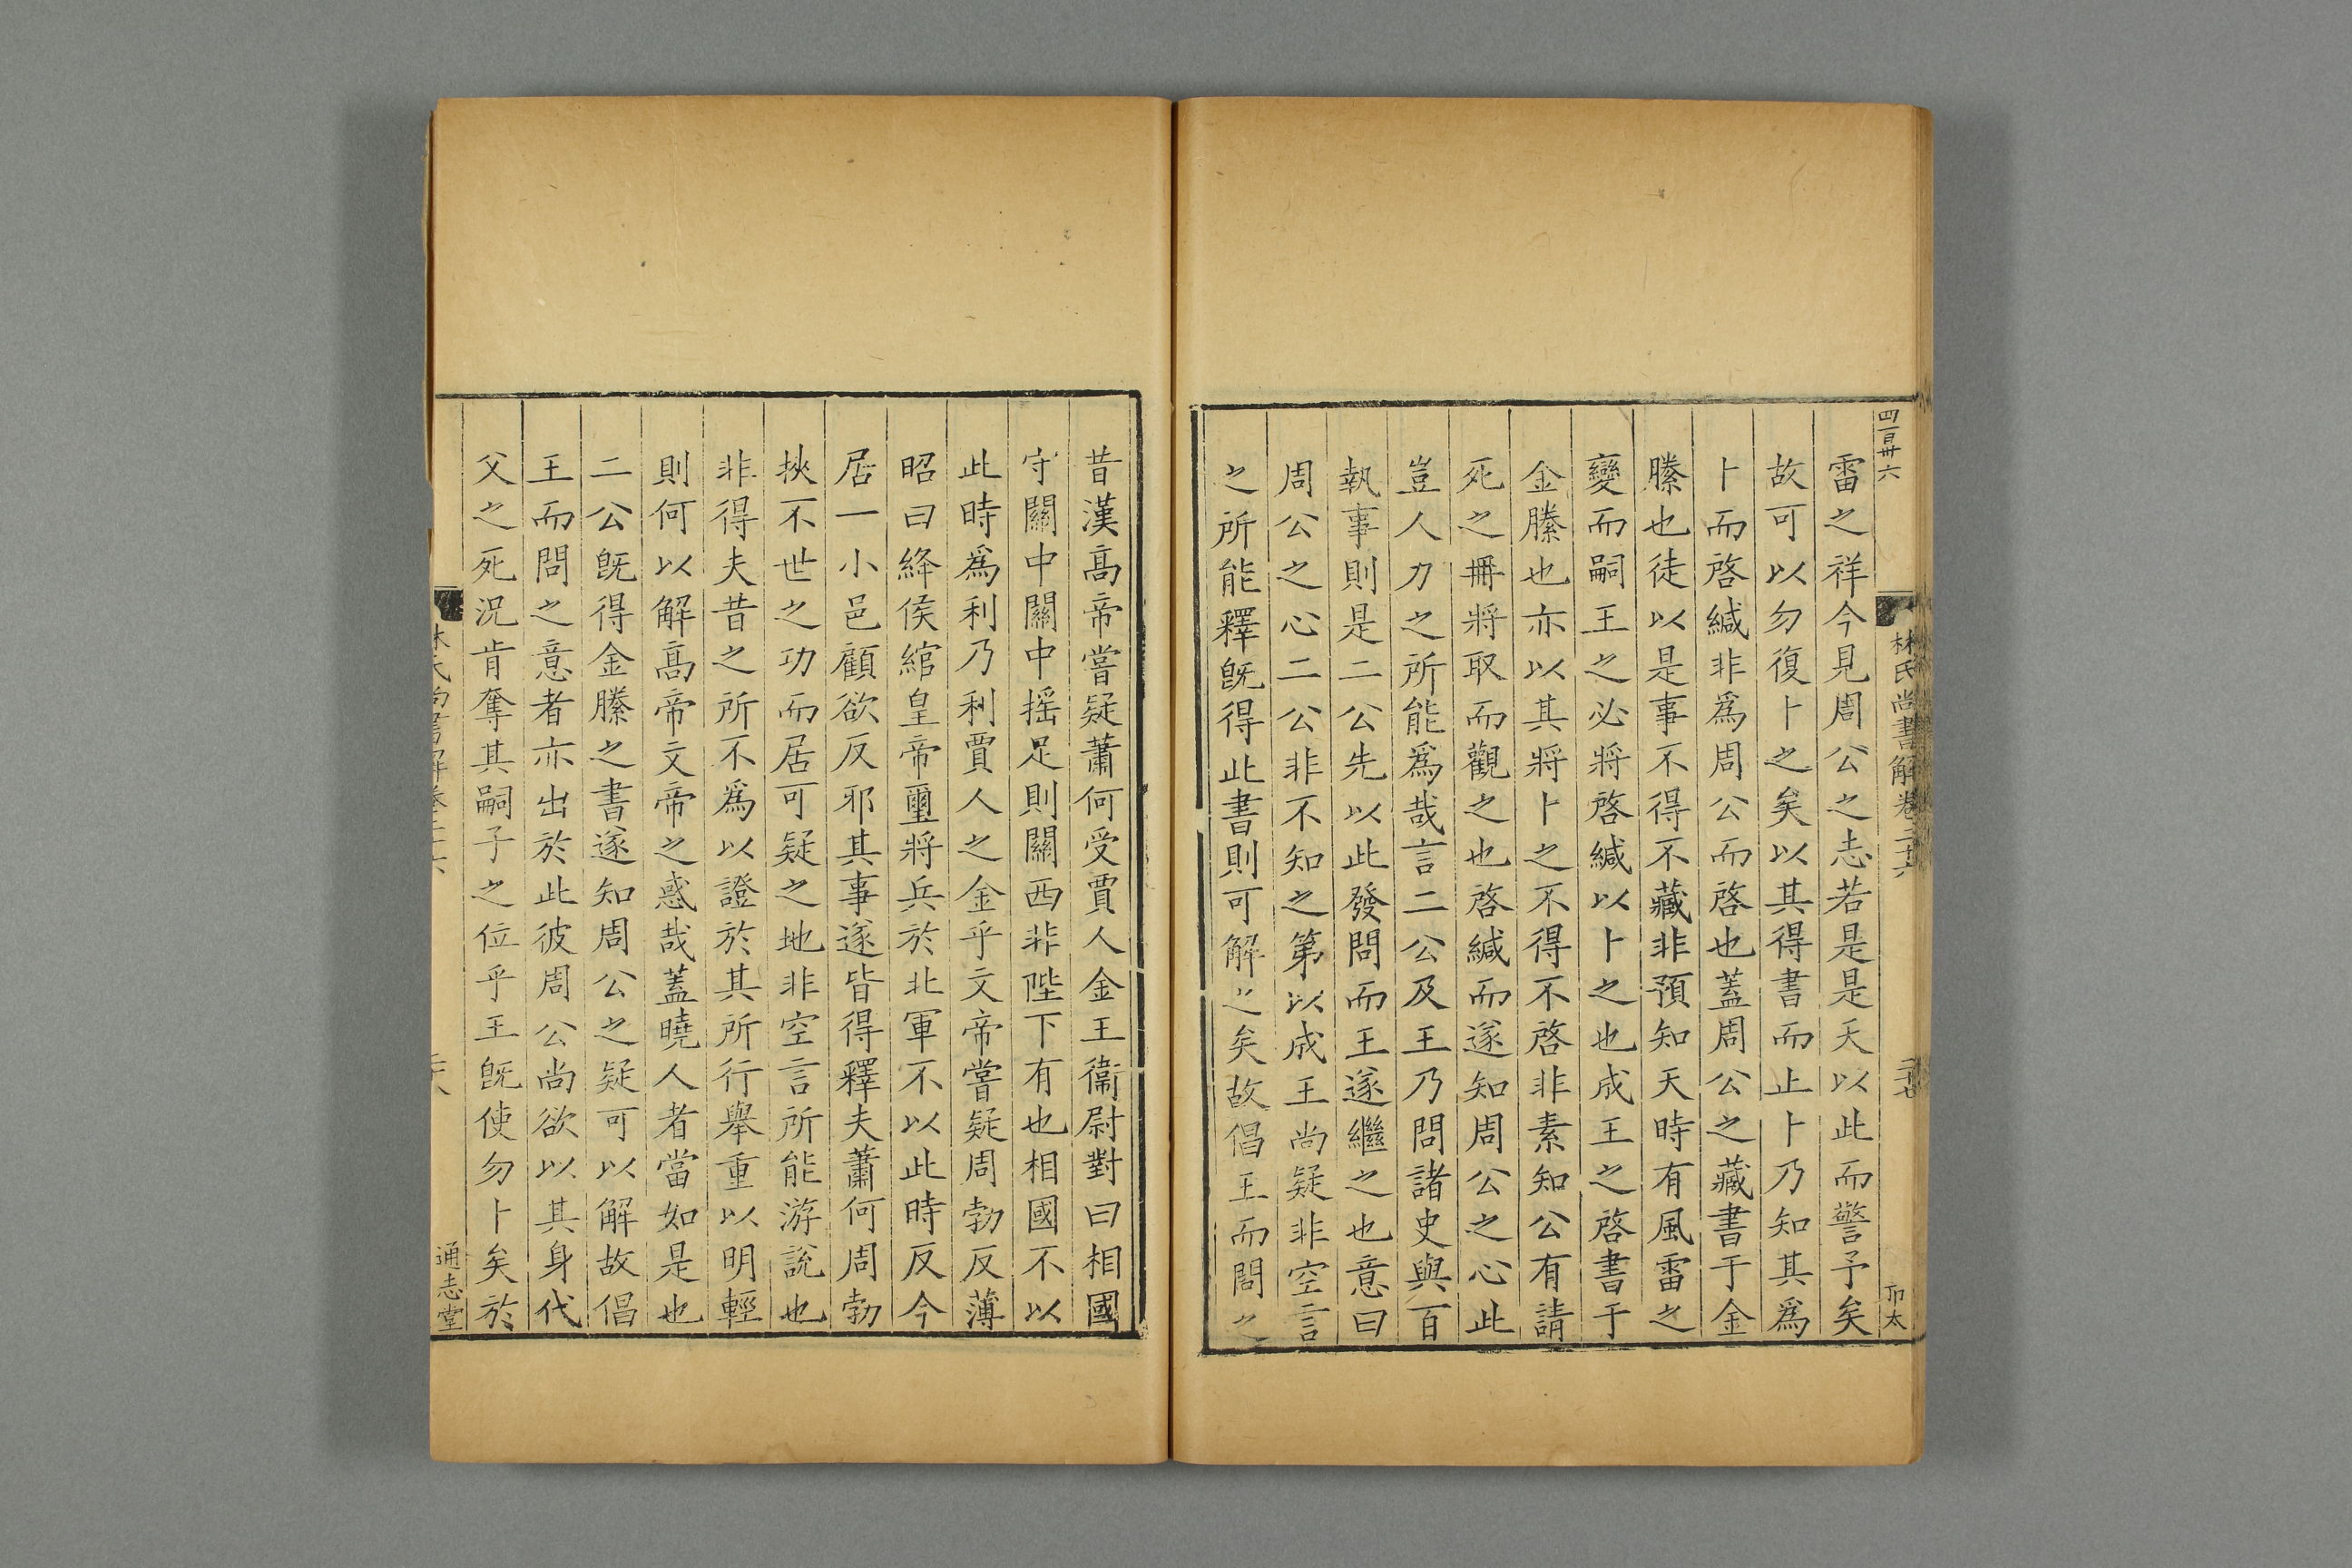 四百卅六
林氏尚書解卷二十六
二十七
雷之祥今見周公之志若是是天以此而警予矣
故可以勿復卜之矣以其得書而止卜乃知其爲
卜而啓緘非爲周公而啓也蓋周公之藏書于金
縢也徒以是事不得不藏非預知天時有風雷之
變而嗣王之必將啓緘以卜之也成王之啓書于
金縢也亦以其將卜之不得不啓非素知公有請
死之冊將取而觀之也啓緘而遂知周公之心此
豈人力之所能爲哉言二公及王乃問諸史與百
執事則是二公先以此發問而王遂繼之也意曰
周公之心二公非不知之第以成王尚疑非空言
之所能釋旣得此書則可解之矣故倡王而問之
昔漢高帝嘗疑蕭何受賈人金王衞尉對曰相國
守關中關中搖足則關西非陛下有也相國不以
此時爲利乃利賈人之金乎文帝嘗疑周勃反薄
昭曰絳侯綰皇帝璽將兵於北軍不以此時反今
居一小邑顧欲反邪其事遂皆得釋夫蕭何周勃
挾不世之功而居可疑之地非空言所能游說也
非得夫昔之所不爲以證於其所行舉重以明輕
則何以解高帝文帝之惑哉蓋曉人者當如是也
二公旣得金縢之書遂知周公之疑可以解故倡
王而問之意者亦出於此彼周公尚欲以其身代
父之死況肯奪其嗣子之位乎王旣使勿卜矣於
林氏尚書解卷二十六
二十八
通志堂